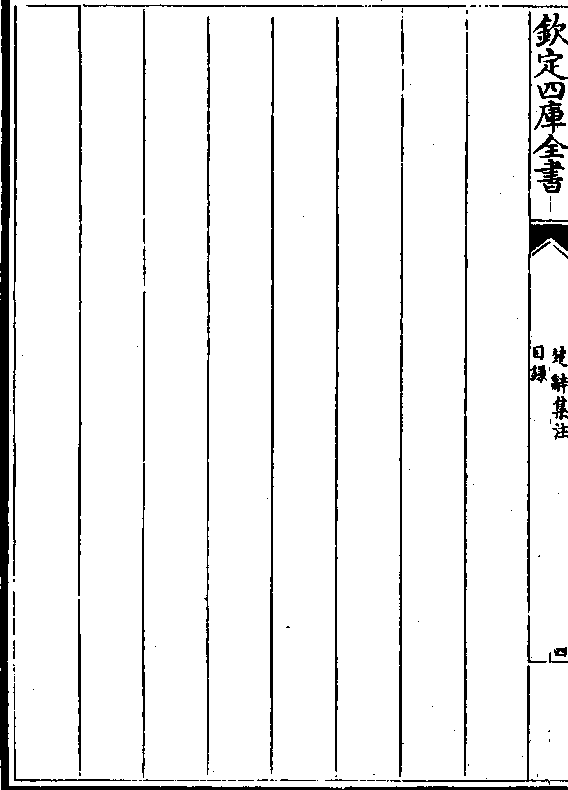 欽定四庫全書
楚辭集注
目録
四